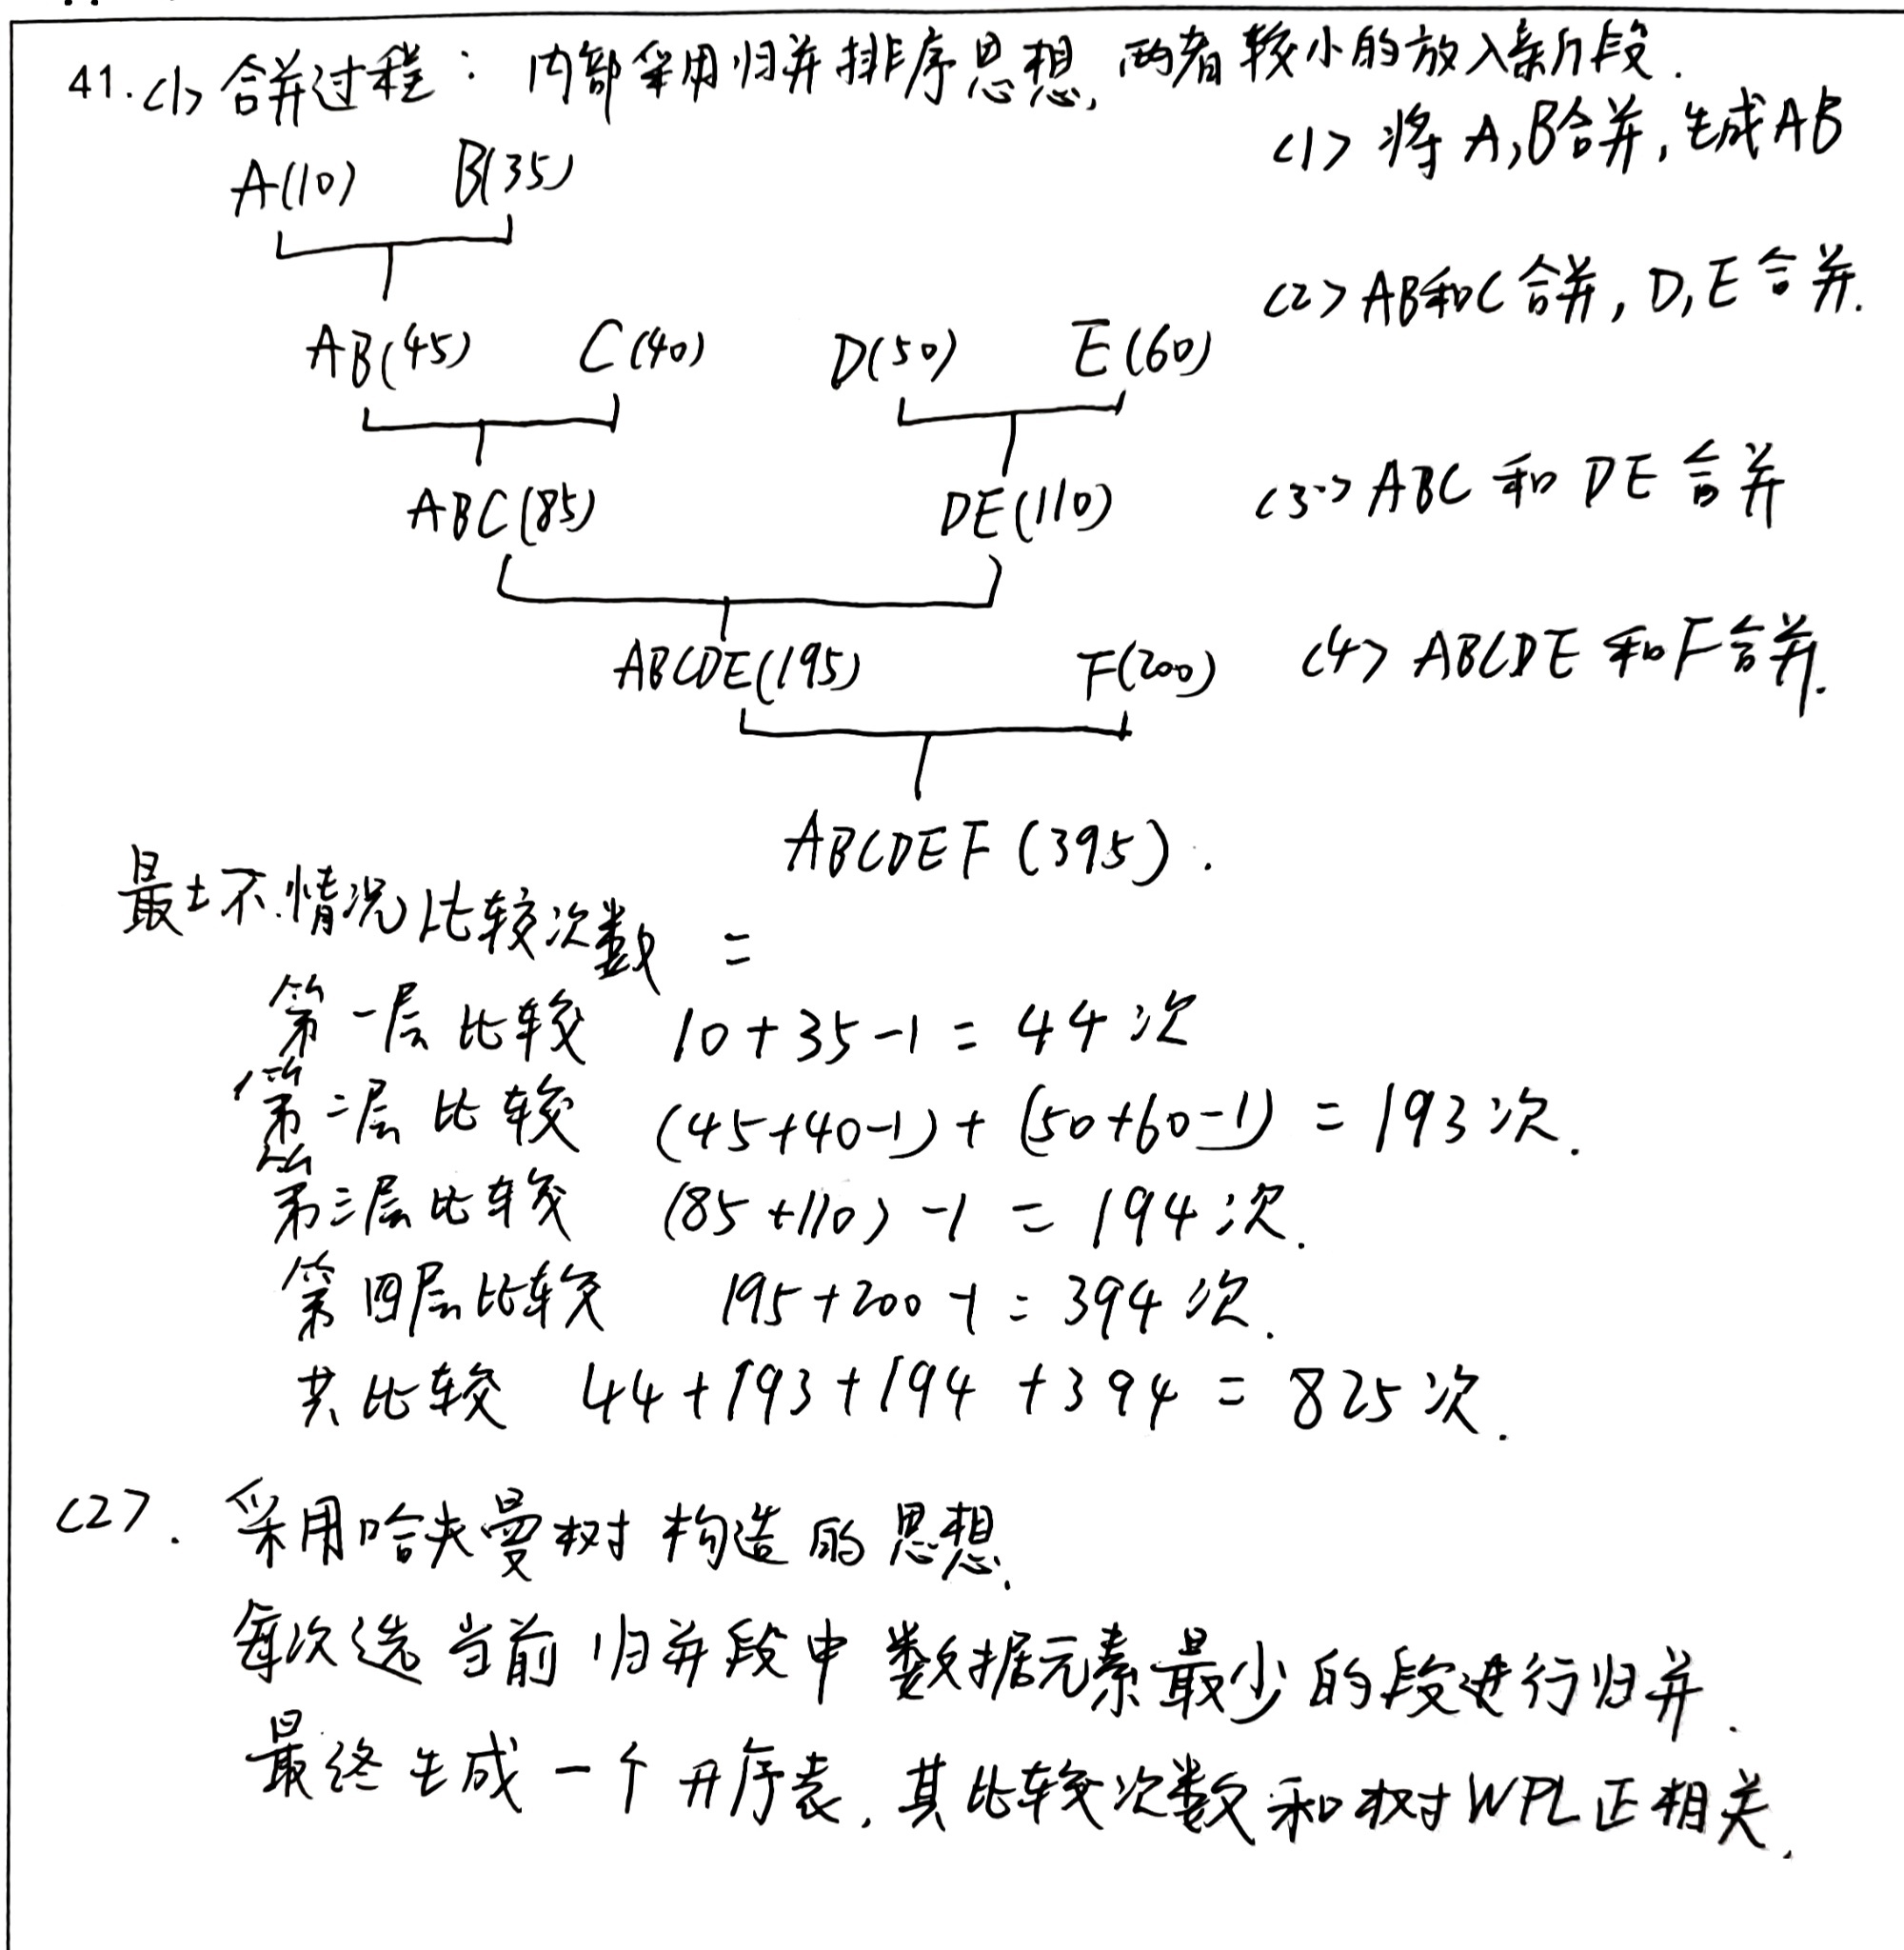 41.(1) 合并过程： 内部采用归并排序思想，两者较小的放入新片段.
(1) 将A,B合并，生成AB
A(10) B(35)
(2) AB和C合并，D,E合并.
AB(45) C(40) D(50) E(60)
(3) ABC和DE合并
ABC(85) DE(110)
(4) ABCDE和F合并.
ABCDE(195) F(200)
ABCDEF(395).
最坏情况比较次数 =
第一层比较 10+35-1=44次
第二层比较 (45+40-1)+(50+60-1)=193次.
第三层比较 (85+110)-1=194次.
第四层比较 195+200-1=394次.
共比较 44+193+194+394=825次.
(2). 采用哈夫曼树构造的思想.
每次选当前归并段中数据元素最少的段进行归并.
最终生成一个升序表，其比较次数和树WPL正相关.